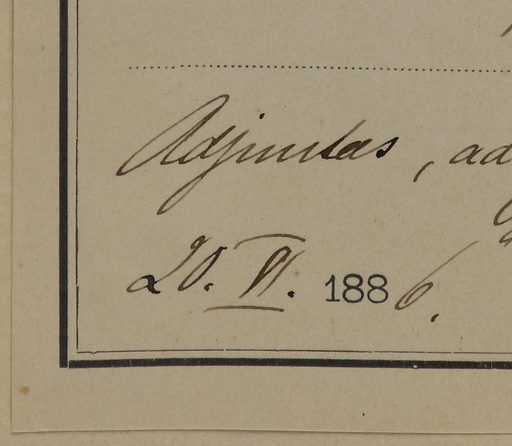 Adjuntas, ad
20. VI. 1886.